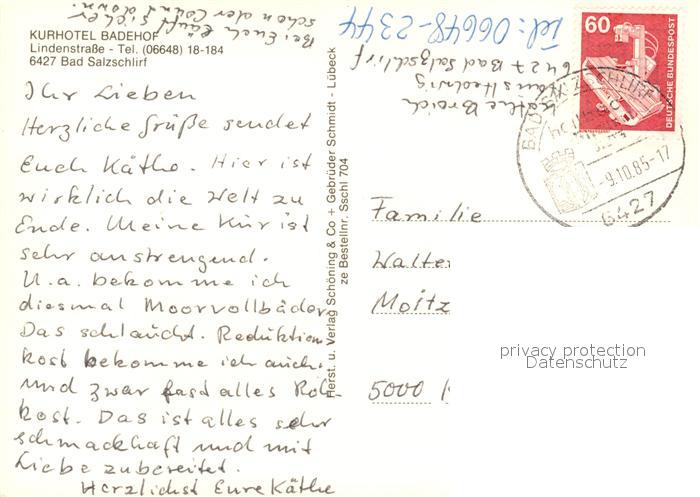 Bei Euch läuft sicher
schon der Count down.
KURHOTEL BADEHOF
Lindenstraße - Tel. (06648) 18-184
6427 Bad Salzschlirf
Ihr Lieben
Herzliche Grüße sendet
Euch Käthe. Hier ist
wirklich die Welt zu
Ende. Meine Kur ist
sehr anstrengend.
U.a. bekomme ich
diesmal Moorvollbäder.
Das schlaucht. Reduktion
kost bekomme ich auch.
und zwar fast alles Roh-
kost. Das ist alles sehr
schmackhaft und mit
Liebe zubereitet.
Herzlichst Eure Käthe
Herst. u. Verlag Schöning & Co + Gebrüder Schmidt - Lübeck
ze Bestellnr. Sschl 704
Tel: 06648-2344
Käthe Broich
Haus Hedwig
6427 Bad Salzschlirf
60
DEUTSCHE BUNDESPOST
BAD SALZSCHLIRF
-9.10.85-17
6427
Familie
Walter
Moitz
5000
privacy protection
Datenschutz